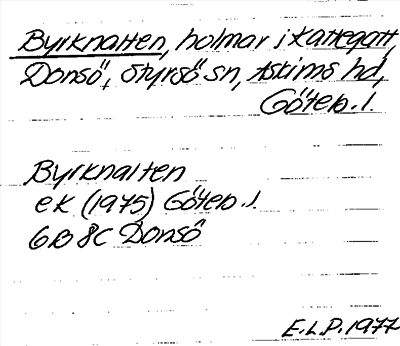 Byrknatten, holmar i Kattegatt,
Donsö, Styrsö sn, Askims hd,
Göteb. l.
Byrknatten
ek (1975) Göteb. l.
6B 8C Donsö
E.L.P. 1977